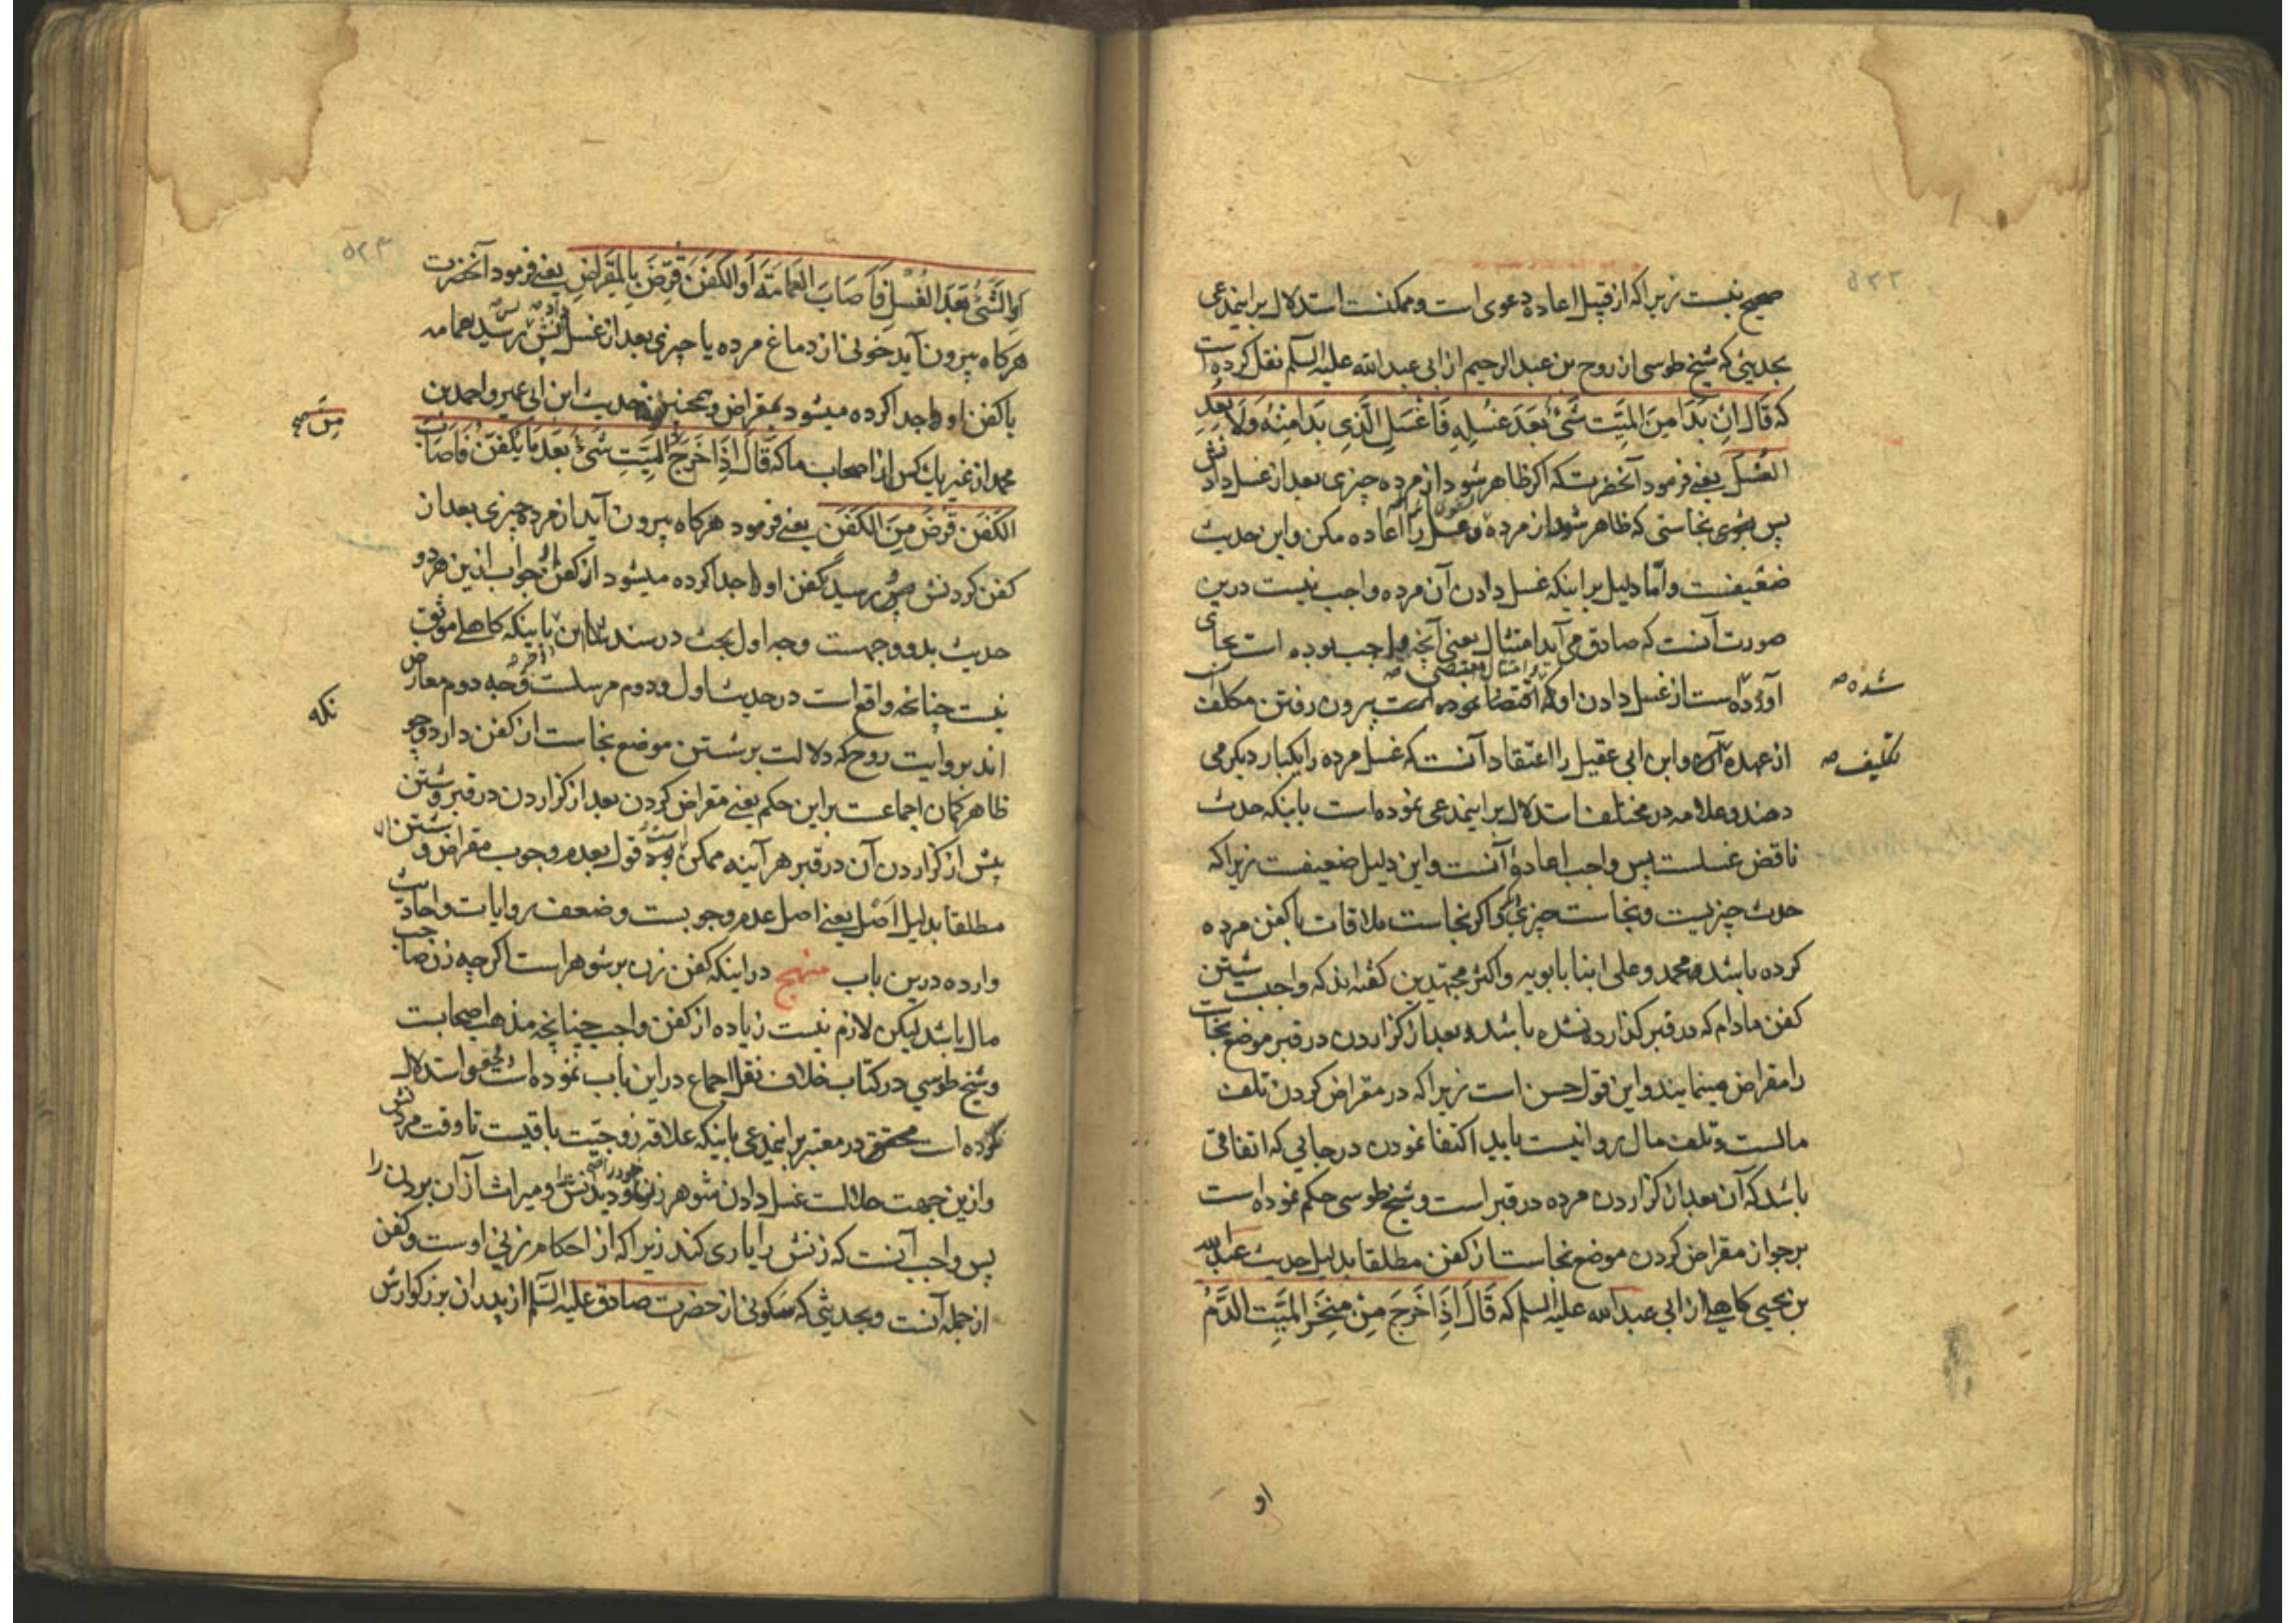 ۵۲۳
صحیح نیست زیرا که از قبیل اعاده دعوی است و ممکنست استدلال بر اینمدعی
بحدیثی که شیخ طوسی از روح بن عبد الرحیم از ابی عبد الله علیه السلم نقل کرده است
که قَالَ اِنْ بَدَا مِنَ المَیِّتِ شَیْءٌ بَعْدَ غُسْلِهِ فَاغْسِلِ الَّذِی بَدَا مِنْهُ وَلَا تُعِدِ
الغُسْلَ یعنی فرمود آنحضرت که اگر ظاهر شود از مرده چیزی بعد از غسل دادنش
پس بشوی نجاستی که ظاهر شود از مرده و غسل را اعاده مکن و این حدیث
ضعیفست و اما دلیل بر اینکه غسل دادن آن مرده واجب نیست درین
صورت آنست که صادق می آید امتثال یعنی آنچه واجب بوده است بجای
آورده است از غسل دادن او که بیرون رفتن مکلف
شده صح
از عهده و ابن ابی عقیل را اعتقاد آنست که غسل مرده را یکبار دیگر می
تکلیف صح
دهند و علامه در مختلف استدلال بر اینمدعی نموده است باینکه حدث
ناقض غسلست پس واجب اعاده آنست و این دلیل ضعیفست زیرا که
حدث چیزیست و نجاست چیزی دیگر و اگر نجاست ملاقات با کفن مرده
کرده باشد محمد و علی ابنا بابویه و اکثر مجتهدین گفته اند که واجب شستن
کفن مادام که در قبر گذارده نشده باشد و بعد از گزاردن در قبر موضع نجاست
را مقراض مینمایند و این قول حسن است زیرا که در مقراض کردن تلف
مالست و تلف مال روا نیست باید اکتفا نمودن در جایی که اتفاقی
باشد که آن بعد از گزاردن مرده در قبر است و شیخ طوسی حکم نموده است
بر جواز مقراض کردن موضع نجاست از کفن مطلقا بدلیل حدیث عبد الله
بن یحیی کاهلی از ابی عبد الله علیه السلم که قَالَ اِذَا خَرَجَ مِنْ مِنْخَرِ المَیِّتِ الدَّمُ
او
۵۲۴
اَوِ الشَّیْءُ بَعْدَ الغُسْلِ فَاَصَابَ العَمَامَةَ اَوِ الکَفَنَ قُرِّضَ بِالمِقْرَاضِ یعنی فرمود آنحضرت
هرگاه بیرون آید خونی از دماغ مرده یا چیزی بعد از غسل دادنش پس رسید بعمامه
یا کفن او جدا کرده میشود بمقراض و همچنین حدیث ابن ابی عمیر و احمد بن
محمد از غیر یک کس از اصحاب ما که قَالَ اِذَا خَرَجَ المَیِّتِ شَیْءٌ بَعْدَ مَا یُکَفَّنُ فَاَصَابَ
مِنَ صح
الکَفَنَ قُرِضَ مِنَ الکَفَنِ یعنی فرمود هرگاه بیرون آید از مرده چیزی بعد از
کفن کردنش رسید بکفن او جدا کرده میشود از کفن و جواب ازین هر دو
حدیث بدو وجهست وجه اول بحث در سند باینکه کاهلی موثق
نیست چنانچه واقع است در حدیث اول و دوم مرسلست وجه دوم معارض
اند بروایت روح که دلالت بر شستن موضع نجاست از کفن دارد و چو
نکه
ظاهر کمان اجماعست بر این حکم یعنی مقراض کردن بعد از گزاردن در قبر و شستن
پیش از گزاردن آن در قبر هر آینه ممکن قول بعدم وجوب مقراض و شستن
مطلقا بدلیل اصل یعنی اصل عدم وجوبست و ضعف روایات و احادیث
وارده درین باب منهج در اینکه کفن زن بر شوهر است اگر چه زن صاحب
مال باشد لیکن لازم نیست زیاده از کفن واجب چنانچه مذهب اصحابست
و شیخ طوسی در کتاب خلاف نقل اجماع در این باب نموده است و استدلال
کرده است محقق در معتبر بر اینمدعی باینکه علاقه زوجیت باقیست تا وقت مردنش
و ازین جهت حلالست غسل دادن شوهر زن خود را و دیدنش و میراث از آن بردن را
پس واجب آنست که زنش را یاری کند زیرا که از احکام زنی اوست و کفن
از جمله آنست و بحدیثی که سکونی از حضرت صادق علیه السلم از پدران بزرگوارش